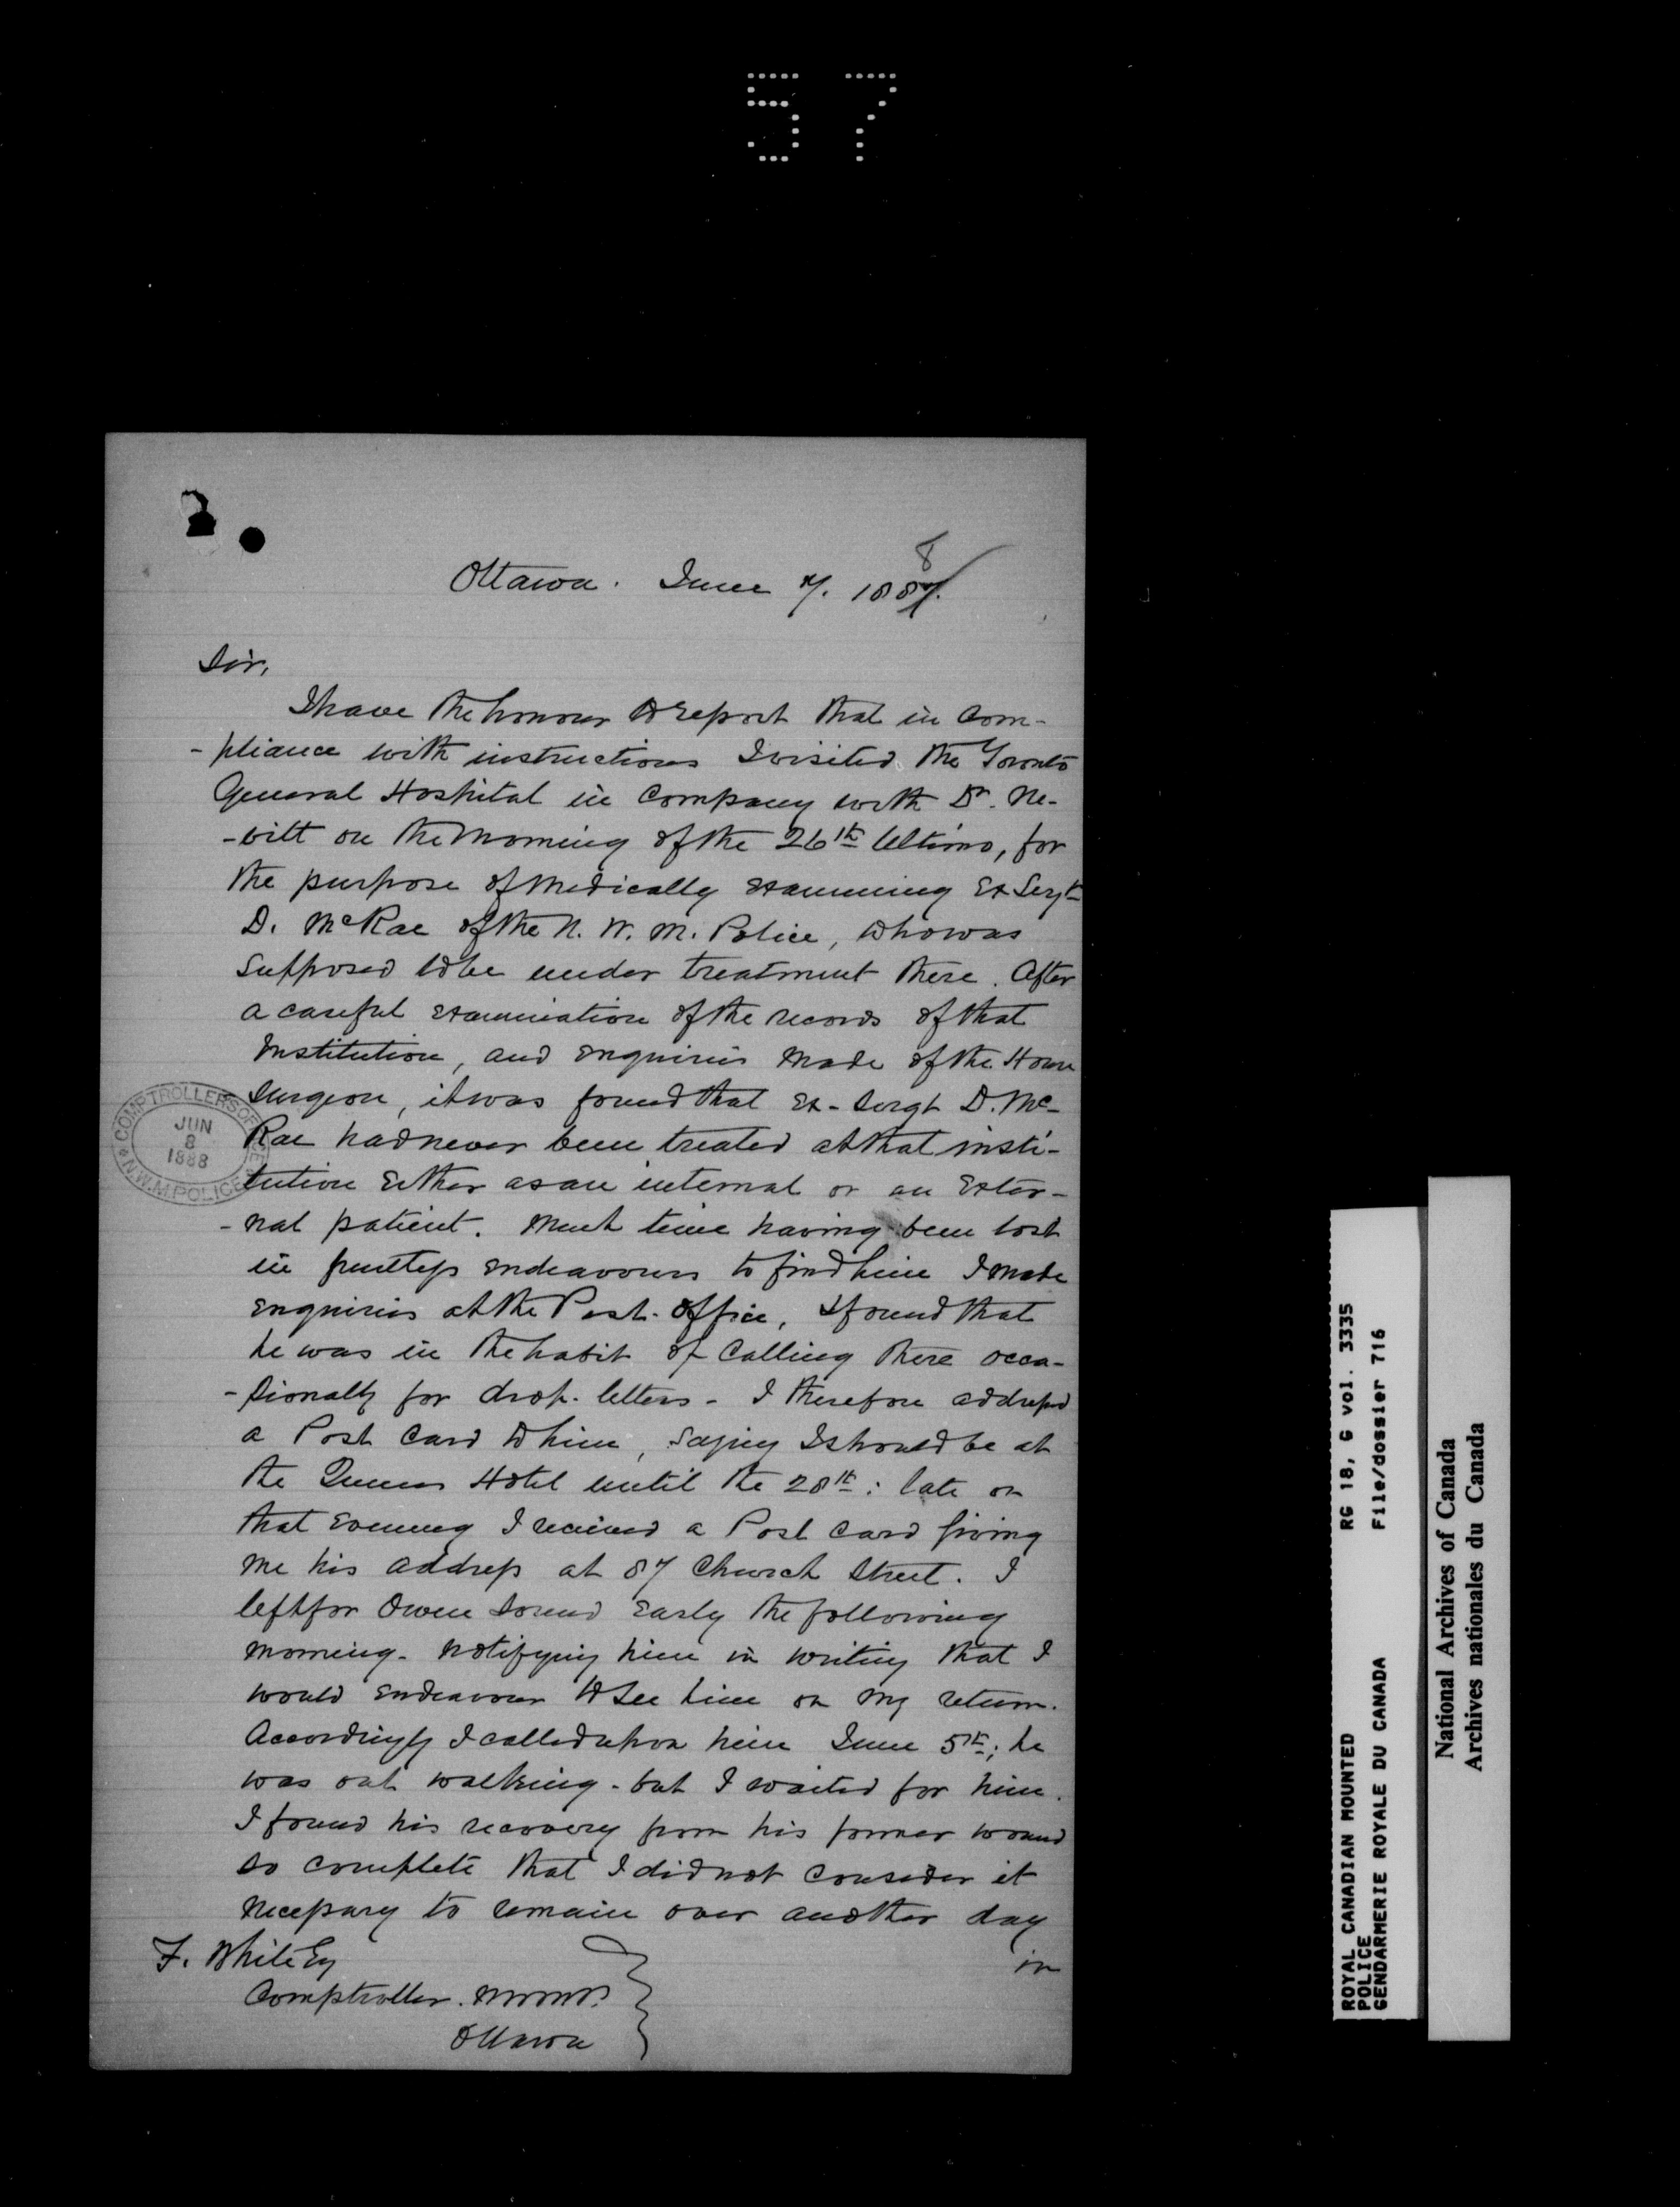 57
Ottawa. June 7. 1888
Sir,
I have the honour to report that in com-
-pliance with instructions I visited the Toronto
General Hospital in company with Dr. Ne-
-vitt on the morning of the 26th Ultimo, for
the purpose of medically examining Ex Sergt
D. McRae of the N. W. M. Police, who was
supposed to be under treatment there. After
a careful examination of the records of that
Institution, and enquiries made of the House
Surgeon, it was found that Ex-Sergt D. Mc-
Rae had never been treated at that insti-
-tution either as an internal or an exter-
-nal patient. Much time having been lost
in fruitless endeavours to find him I made
enquiries at the Post-Office, & found that
he was in the habit of calling there occa-
-sionally for drop-letters - I therefore addressed
a Post Card to him, saying I should be at
the Queens Hotel until the 28th: late on
that evening I received a Post Card giving
me his address at 87 Church Street. I
left for Owen Sound early the following
morning - notifying him in writing that I
would endeavour to see him on my return.
Accordingly I called upon him June 5th; he
was out walking - but I waited for him.
I found his recovery from his former wound
so complete that I did not consider it
necessary to remain over another day
in
F. White Esq
Comptroller. NWMP.
Ottawa
COMPTROLLERS OFFICE
JUN
8
1888
N.W.M. POLICE
ROYAL CANADIAN MOUNTED RG 18, G vol. 3335
POLICE
GENDARMERIE ROYALE DU CANADA File/dossier 716
National Archives of Canada
Archives nationales du Canada